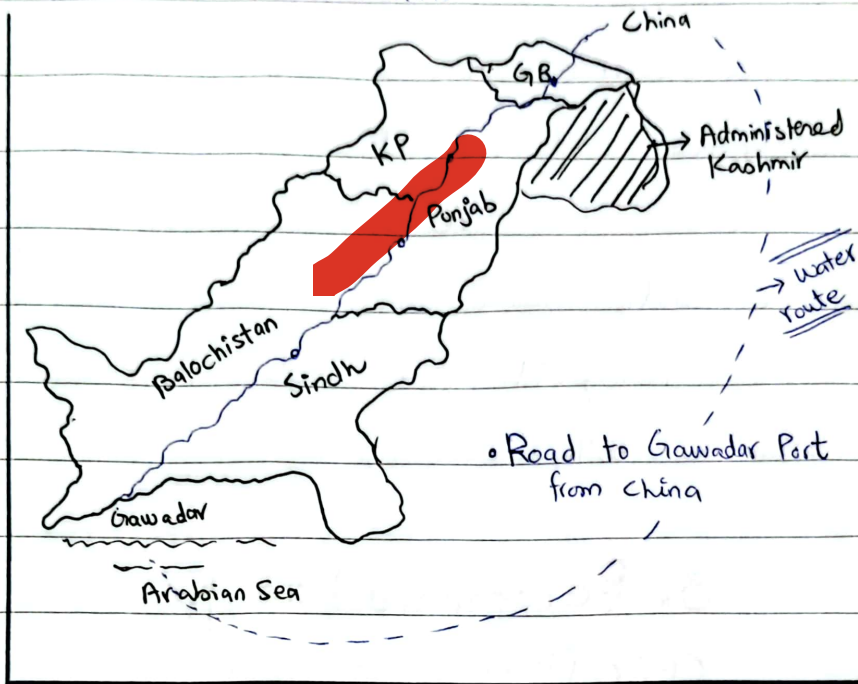 China
GB
Administered
Kashmir
KP
Punjab
→ water
route
Balochistan
Sindh
• Road to Gawadar Port
from china
Gawadar
Arabian Sea